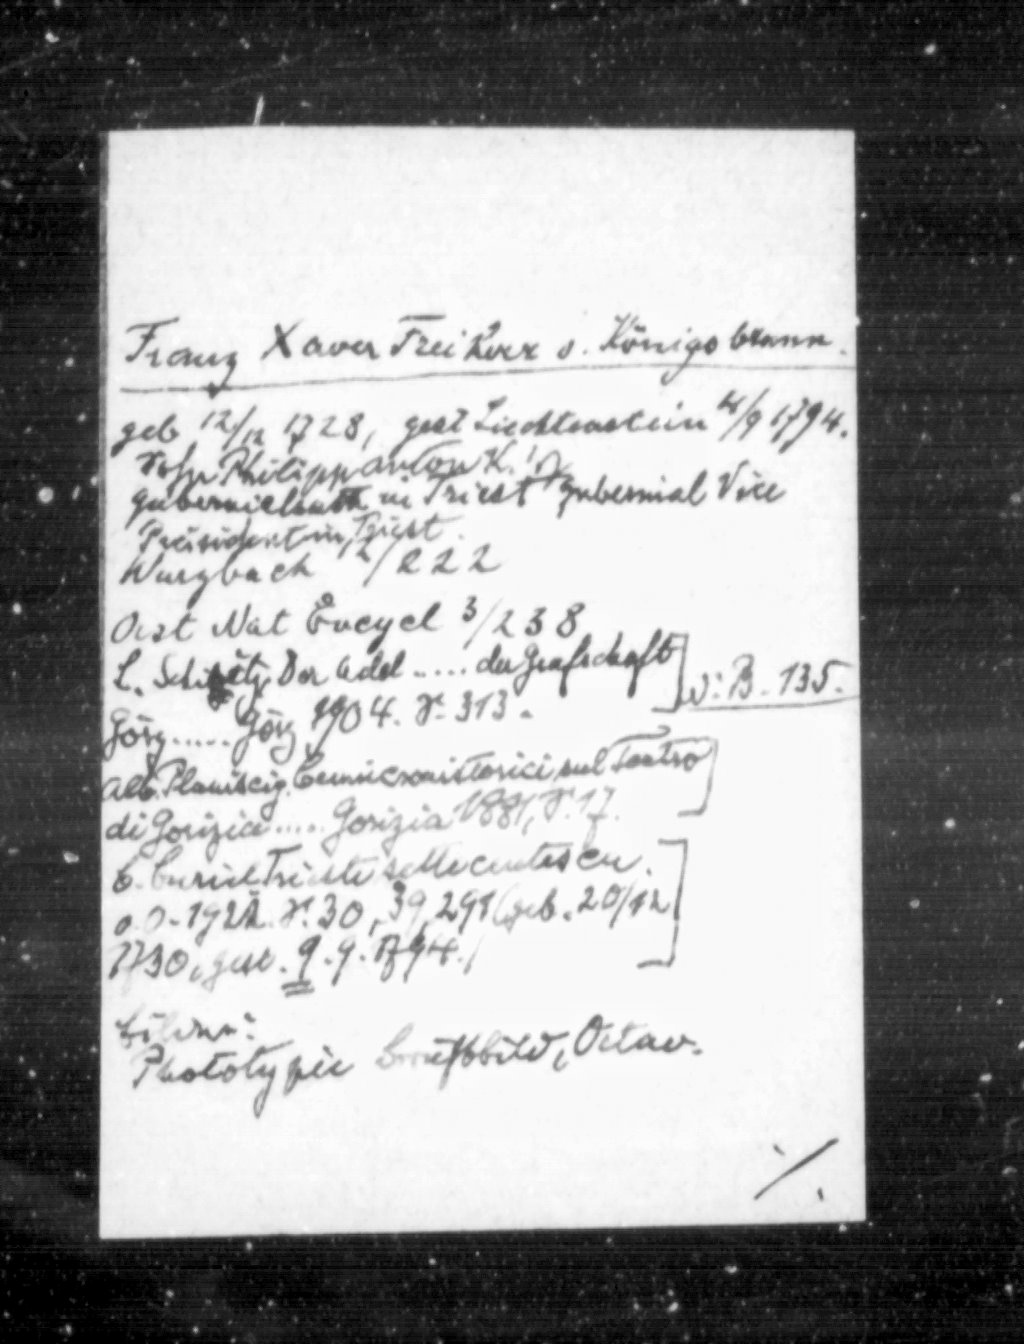 Franz Xaver Freiherr v. Königsbrann.
geb 12/12 1728, gest Liechtenstein 4/9 1794.
Sohn Philipp Anton K.'s
gubernialrath in Triest gubernial Vice
Präsident in Triest.
Wurzbach 12/222
Oest Nat Encycl 3/238
L. Schiwitz Der Adel ..... der Grafschaft
Görz ..... Görz 1904. S. 313.
v. B. 135.
Alb. Planiscig, Cennic storici sul Teatro
di Gorizia ..... Gorizia 1881, S. 17.
C. Curiel Trieste settecentesca.
o. O. 1922. S. 30, 39, 291 (geb. 20/12
1730, gest. 9. 9. 1794.)
Phototypie Brustbild, Octav.
./.